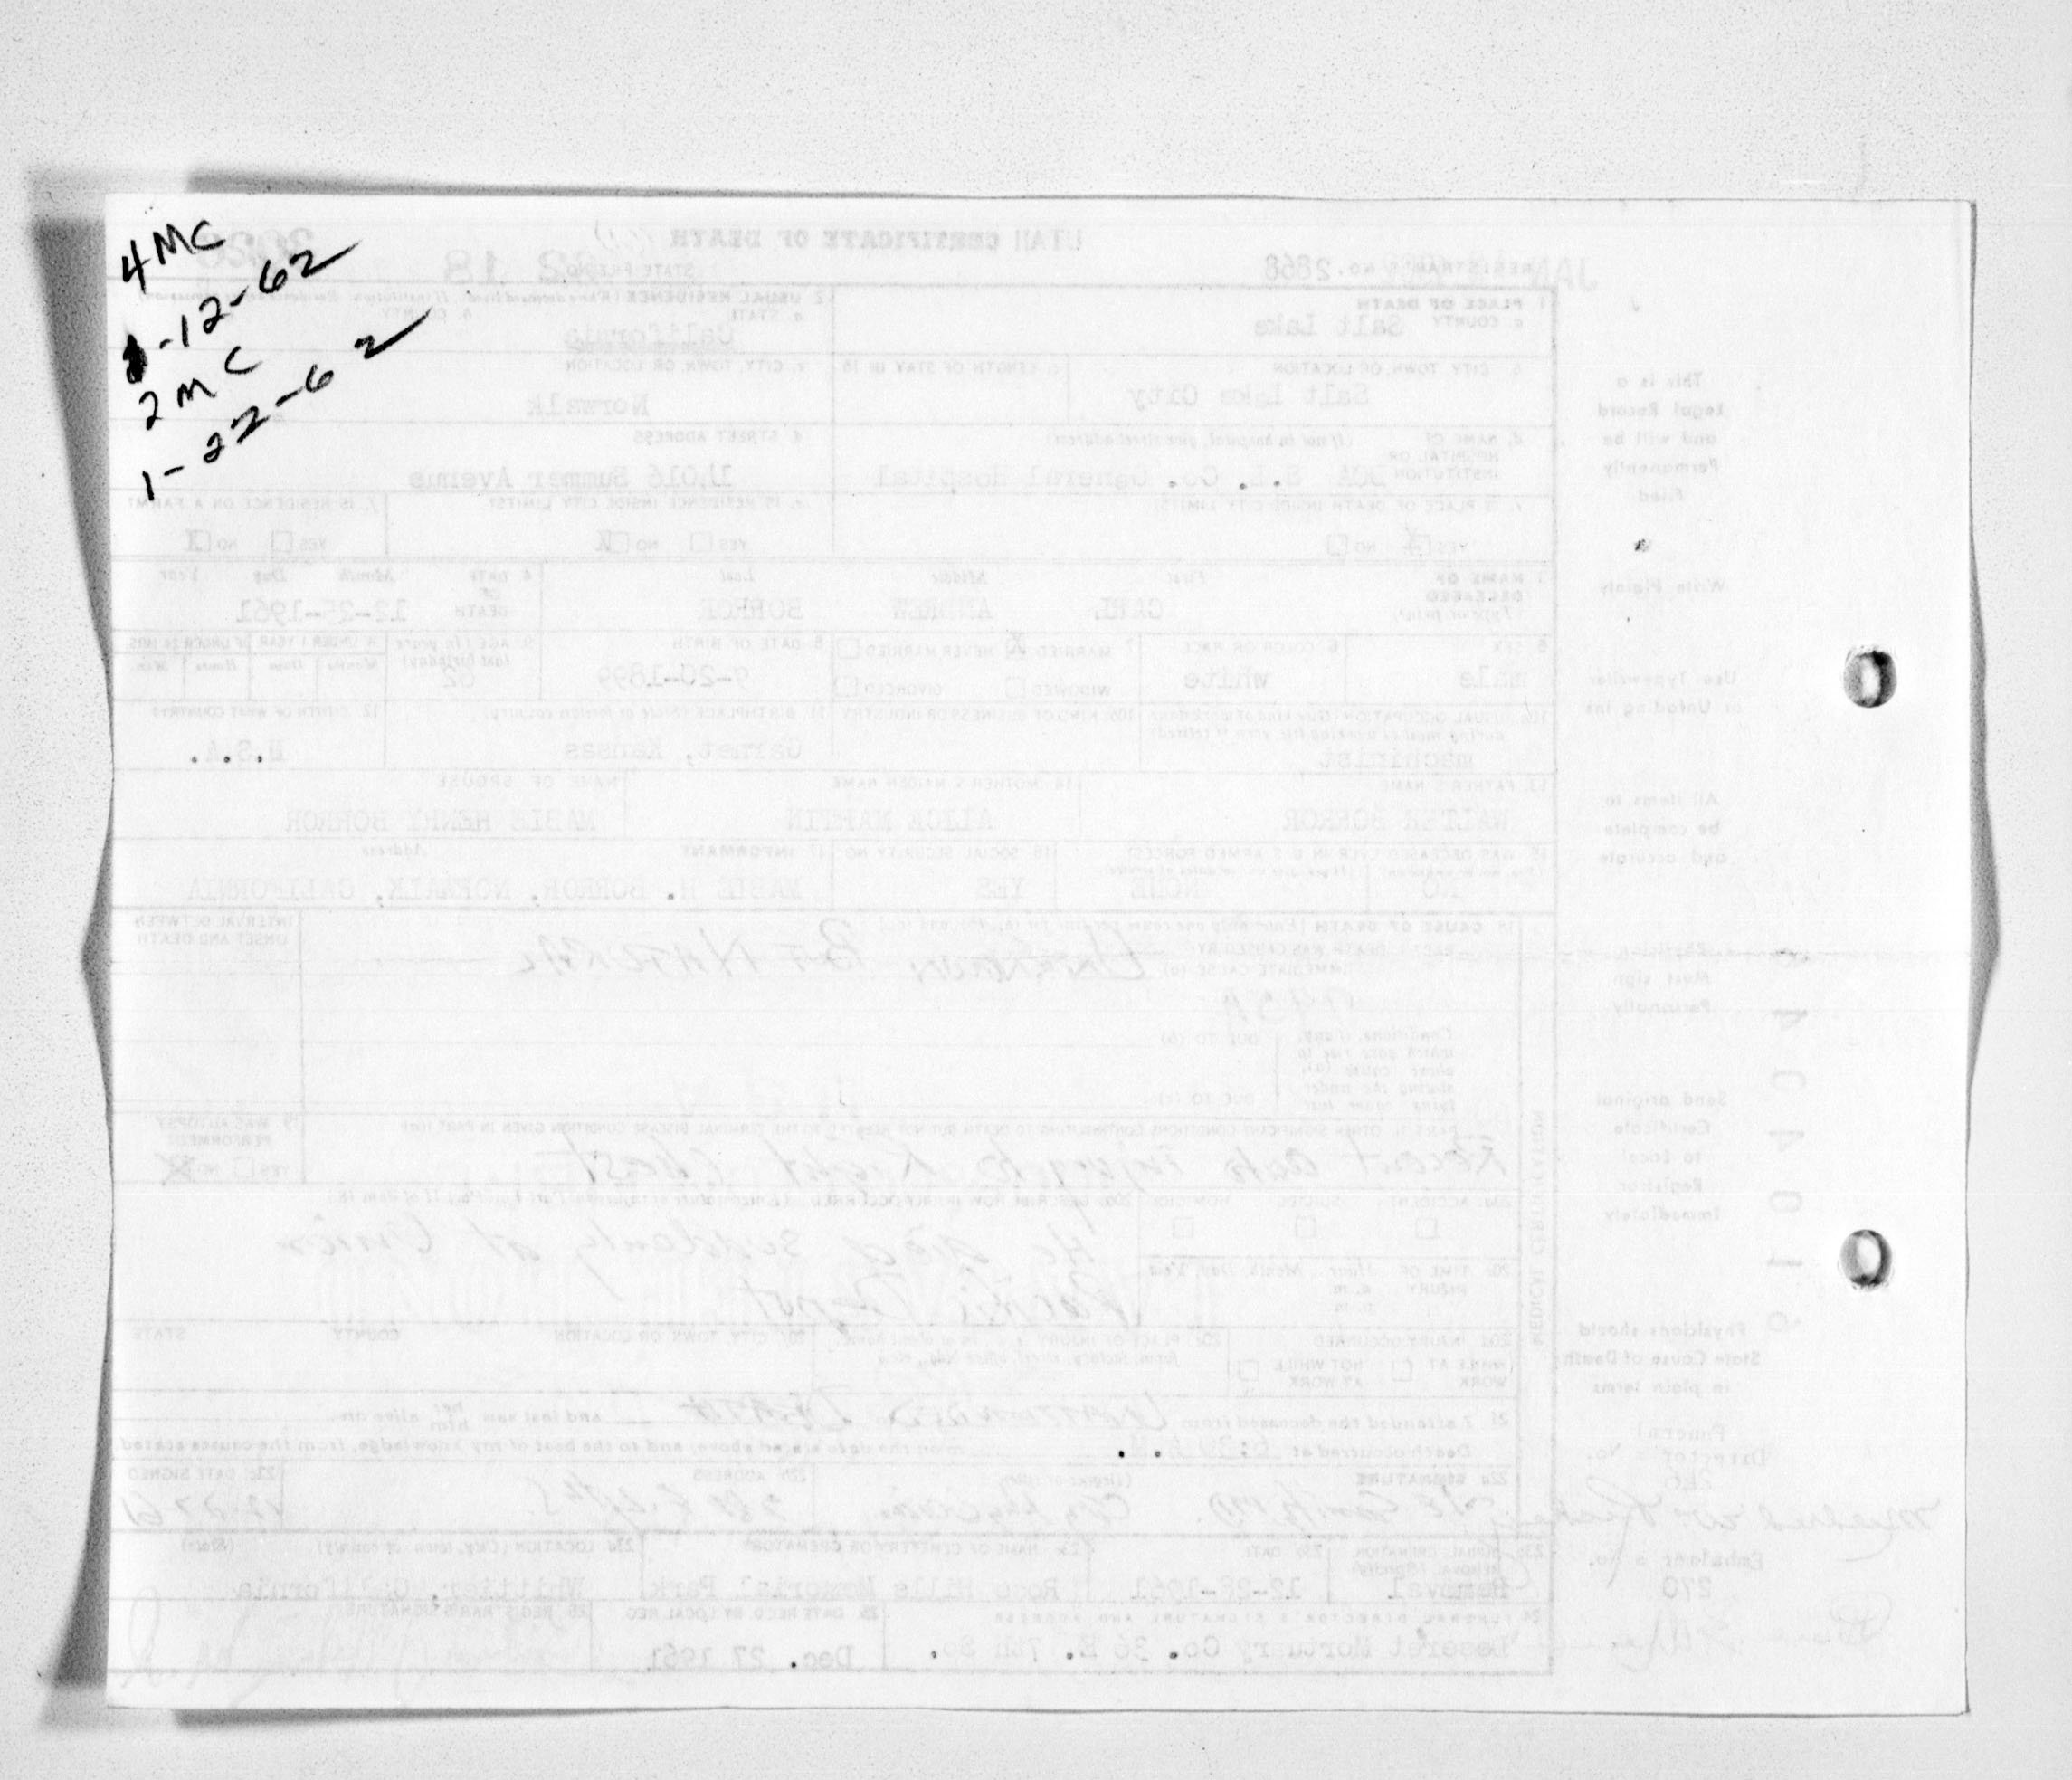 4 MC
1-12-62
2 MC
1-22-62
UTAH CERTIFICATE OF DEATH
REGISTRAR'S NO. 2868
STATE FILE NO. 18
1. PLACE OF DEATH
a. COUNTY Salt Lake
2. USUAL RESIDENCE
a. STATE California
b. COUNTY
b. CITY, TOWN, OR LOCATION Salt Lake City
c. LENGTH OF STAY IN 1b
c. CITY, TOWN, OR LOCATION Norwalk
d. NAME OF HOSPITAL OR INSTITUTION (If not in hospital, give street address) DOA S.L. Co. General Hospital
d. STREET ADDRESS 11016 Summer Avenue
e. IS PLACE OF DEATH INSIDE CITY LIMITS? YES X NO
e. IS RESIDENCE INSIDE CITY LIMITS? YES NO X
f. IS RESIDENCE ON A FARM? YES NO X
3. NAME OF DECEASED (Type or print) First Middle Last
CARL ANDREW BORROR
4. DATE OF DEATH Month Day Year 12-25-1961
5. SEX male
6. COLOR OR RACE white
7. MARRIED X NEVER MARRIED WIDOWED DIVORCED
8. DATE OF BIRTH 9-20-1899
9. AGE (In years last birthday) 62
IF UNDER 1 YEAR IF UNDER 24 HRS
Months Days Hours Min.
10a. USUAL OCCUPATION (Give kind of work done during most of working life, even if retired) machinist
10b. KIND OF BUSINESS OR INDUSTRY
11. BIRTHPLACE (State or foreign country) Garnet, Kansas
12. CITIZEN OF WHAT COUNTRY? U.S.A.
13. FATHER'S NAME WALTER BORROR
14. MOTHER'S MAIDEN NAME ALICE MARTIN
NAME OF SPOUSE MABIE HENRY BORROR
15. WAS DECEASED EVER IN U.S. ARMED FORCES? NO NONE
16. SOCIAL SECURITY NO. YES
17. INFORMANT Address MABIE H. BORROR, NORWALK, CALIFORNIA
18. CAUSE OF DEATH
PART I. DEATH WAS CAUSED BY:
IMMEDIATE CAUSE (a) Unknown, But Natural
INTERVAL BETWEEN ONSET AND DEATH
Conditions, if any, which gave rise to above cause (a), stating the underlying cause last
DUE TO (b)
DUE TO (c)
PART II. OTHER SIGNIFICANT CONDITIONS CONTRIBUTING TO DEATH BUT NOT RELATED TO THE TERMINAL DISEASE CONDITION GIVEN IN PART I(a)
Recent auto injury to Right Chest
19. WAS AUTOPSY PERFORMED? YES NO X
20a. ACCIDENT SUICIDE HOMICIDE
20b. DESCRIBE HOW INJURY OCCURRED
He died suddenly at Union Pacific Depot
20c. TIME OF INJURY Hour Month, Day, Year a.m. p.m.
20d. INJURY OCCURRED WHILE AT WORK NOT WHILE AT WORK
20e. PLACE OF INJURY
20f. CITY, TOWN OR LOCATION COUNTY STATE
21. I attended the deceased from Unattended Death and last saw her him alive on
Death occurred at 6:30 m on the date stated above; and to the best of my knowledge, from the causes stated
22a. SIGNATURE (Degree or title) M.D. City Physician
22b. ADDRESS
22c. DATE SIGNED 12-27-61
23a. BURIAL, CREMATION, REMOVAL (Specify) Removal
23b. DATE 12-28-1961
23c. NAME OF CEMETERY OR CREMATORY Rose Hills Memorial Park
23d. LOCATION (City, town, or county) (State) Whittier, California
24. FUNERAL DIRECTOR'S SIGNATURE AND ADDRESS
Deseret Mortuary Co. 36 E. 7th So.
25. DATE REC'D BY LOCAL REG. Dec. 27 1961
26. REGISTRAR'S SIGNATURE
MEDICAL CERTIFICATION
This is a Legal Record and will be Permanently filed
Write Plainly
Use Typewriter or Unfading Ink
All items to be complete and accurate
Physician Must sign Personally
Send original Certificate to Local Registrar Immediately
Physicians should State Cause of Death in plain terms
Funeral Director's No.
Embalmer's No.
270